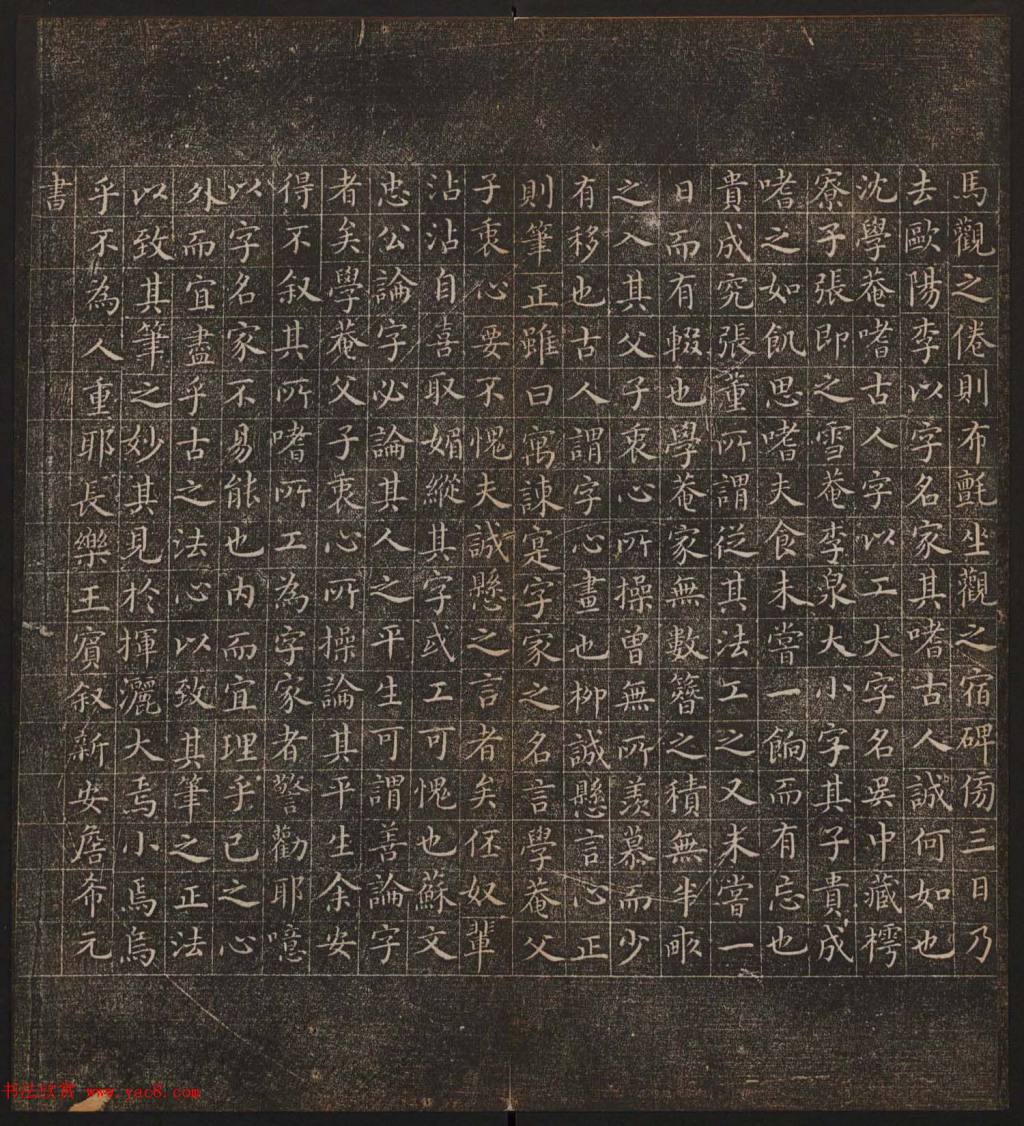 馬觀之倦則布氈坐觀之宿碑傍三日乃
去歐陽李以字名家其嗜古人誠何如也
沈學菴嗜古人字以工大字名吳中藏樗
寮子張即之雪菴李泉大小字其子貴成
嗜之如飢思嗜夫食未嘗一餉而有忘也
貴成究張董所謂從其法工之又未嘗一
日而有輟也學菴家無數簪之積無半畝
之入其父子衷心所操曾無所羨慕而少
有移也古人謂字心畫也柳誠懸言心正
則筆正雖曰寓諫寔字家之名言學菴父
子衷心要不愧夫誠懸之言者矣伾奴輩
沾沾自喜取媚縱其字或工可愧也蘇文
忠公論字必論其人之平生可謂善論字
者矣學菴父子衷心所操論其平生余安
得不叙其所嗜所工為字家者警勸耶噫
以字名家不易能也內而宜理乎已之心
外而宜盡乎古之法心以致其筆之正法
以致其筆之妙其見於揮灑大焉小焉烏
乎不為人重耶長樂王賓叙新安詹希元
書
书法欣赏 www.yac8.com